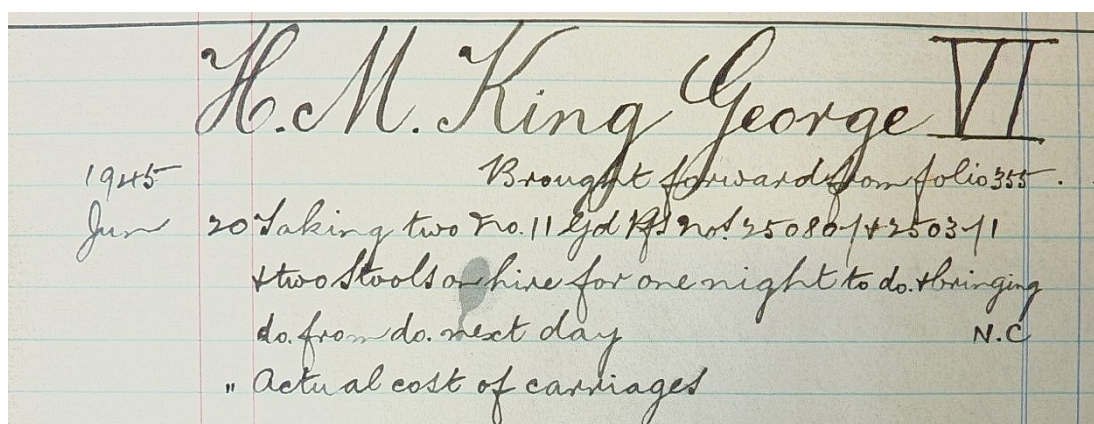 H. M. King George VI
1945 Brought forward from folio 355.
Jun 20 Taking two No. 11 Gd Pfs Nos.
& two Stools on hire for one night to do. & bringing
do. from do. next day N.C
" Actual cost of carriages